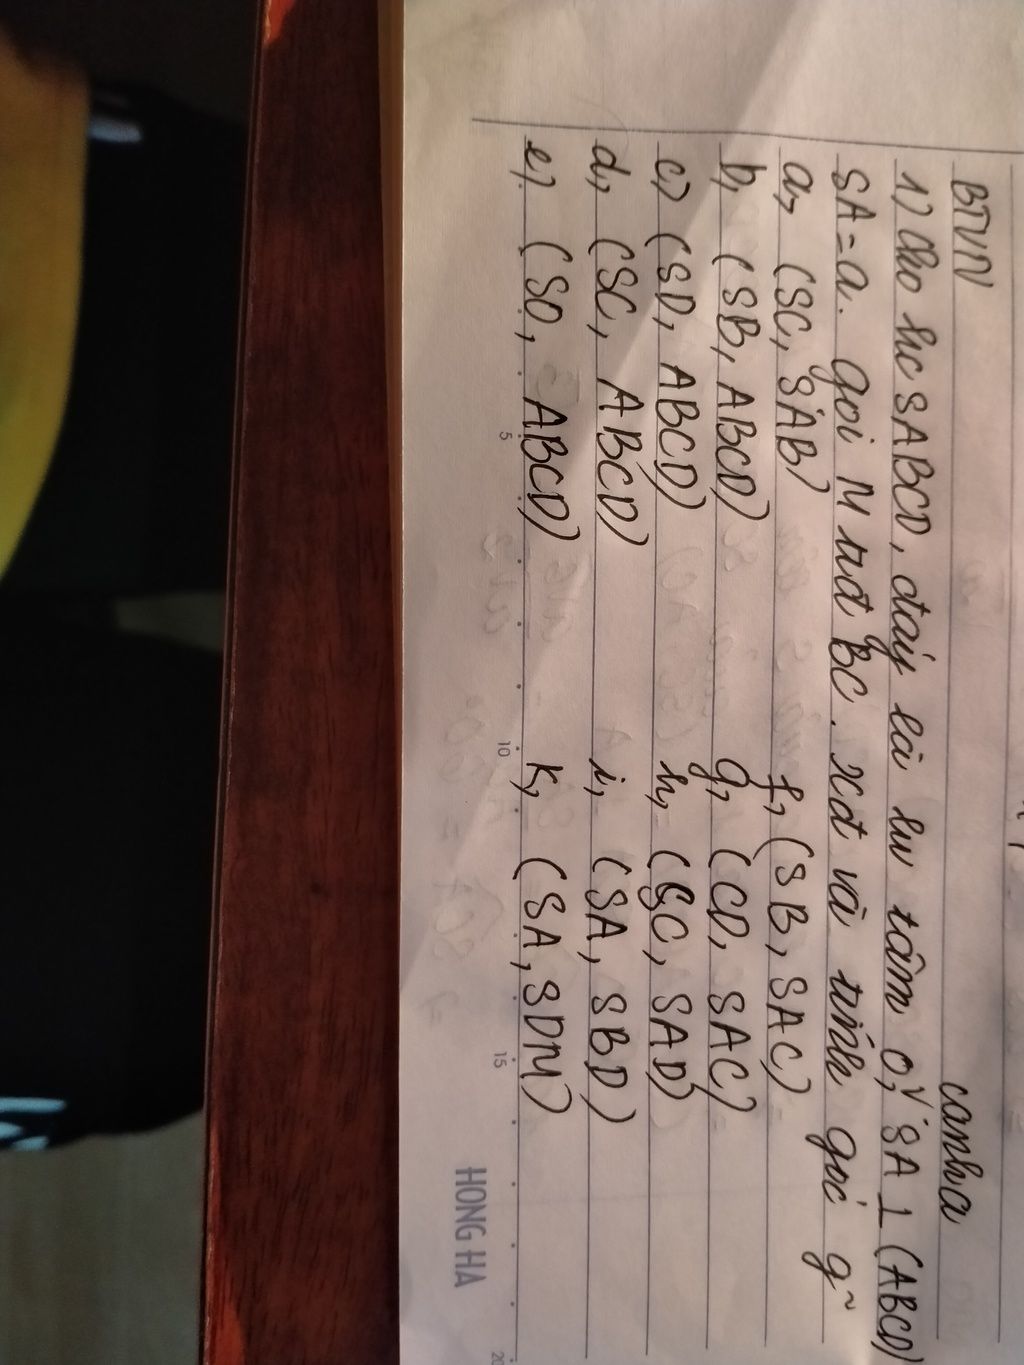 BTVN
canh a
1) Cho hc SABCD, đáy là hv tâm O, SA ⊥ (ABCD)
SA = a. gọi M tđ BC. xđ và tính góc g~
a, (SC, SAB)
b, (SB, ABCD)
c) (SD, ABCD)
d, (SC, ABCD)
e) (SO, ABCD)
f, (SB, SAC)
g, (CD, SAC)
h, (SC, SAD)
i, (SA, SBD)
k, (SA, SDM)
5 10 15 20
HONG HA